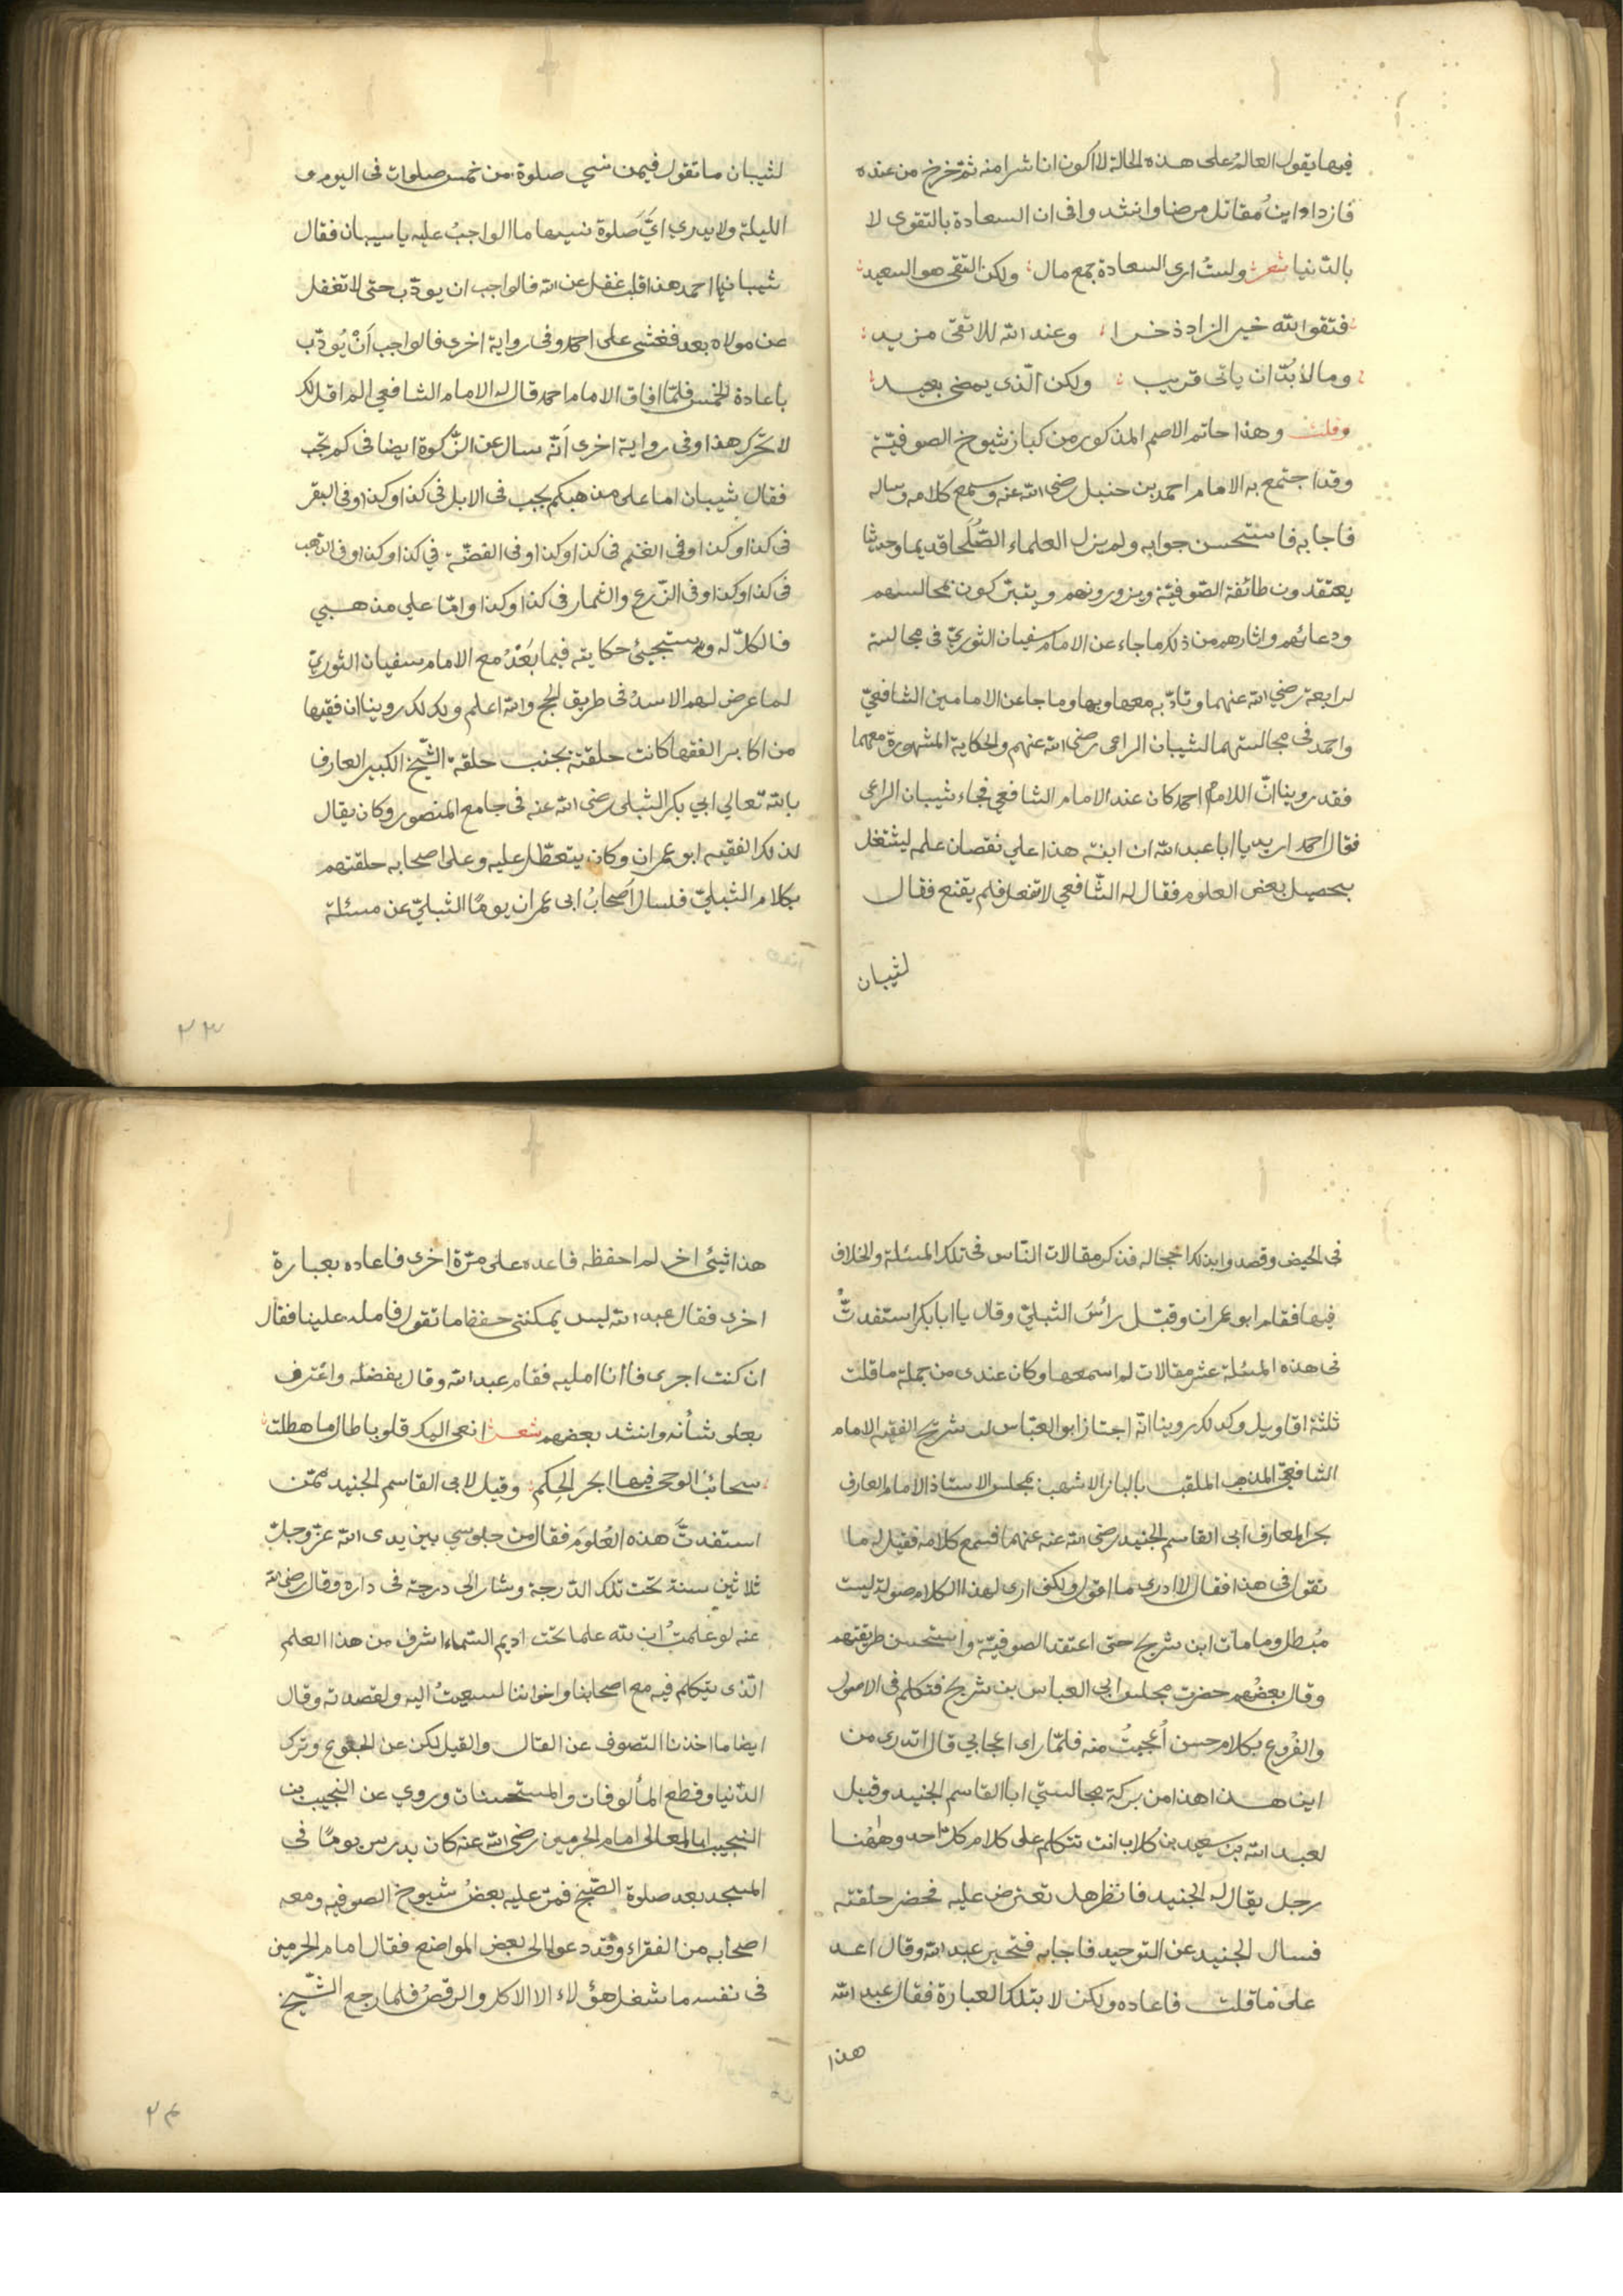 فيها يقول العالم على هذه الحالة لا اكون انا شرا منه ثم خرج من عنده
فازداد ابن مقاتل مرضا وانشد وافى ان السعادة بالتقوى لا
بالدنيا شعر ولست ارى السعادة جمع مال ولكن التقى هو السعيد
فتقوا لله خير الزاد ذخرا وعند الله للاتقى مزيد
وما لا بد ان ياتى قريب ولكن الذى يمضى بعيد
وقلت وهذا حاتم الاصم المذكور من كبار شيوخ الصوفية
وقد اجتمع به الامام احمد بن حنبل رضى الله عنه وسمع كلامه وساله
فاجابه فاستحسن جوابه ولم يزل العلماء الصلحا قديما وحديثا
يعتقدون طائفة الصوفية ويزورونهم ويتبركون بمجالسهم
ودعائهم واثارهم من ذلك ما جاء عن الامام سفيان الثورى فى مجالسة
لرابعة رضى الله عنهما وتادبه معها وبها وما جا عن الامامين الشافعى
واحمد فى مجالستهما لشيبان الراعى رضى الله عنهم والحكاية المشهورة معهما
فقد روينا ان الامام احمد كان عند الامام الشافعى فجاء شيبان الراعى
فقال احمد اريد يا ابا عبد الله ان ابنه هذا على نقصان علمه ليشتغل
بتحصيل بعض العلوم فقال له الشافعي لا تفعل فلم يقنع فقال
لشيبان
لشيبان ما تقول فيمن نسي صلوة من خمس صلوات فى اليوم و
الليلة ولا يدري اىَّ صلوة نسيها ما الواجبُ عليه يا سيبان فقال
شيبان يا احمد هذا قلب غفل عن الله فالواجب ان يودب حتى لا تغفل
عن مولاه بعد فغشى على احمد وفى رواية اخرى فالواجب اَنْ يُودَّب
باعادة الخمس فلما افاق الامام احمد قال له الامام الشافعي الم اقل لك
لا تحرك هذا وفى رواية اخرى اَنّه سال عن الزكوة ايضا فى كم تجب
فقال شيبان اما على مذهبكم يجب فى الابل فى كذا وكذا وفى البقر
فى كذا وكذا وفى الغنم فى كذا وكذا وفى الفضّة في كذا وكذا وفى الذهب
فى كذا وكذا وفى الزرع والثمار فى كذا وكذا واما علي مذهبي
فالكلّ له وستجيئ حكايته فيما بَعْدُ مع الامام سفيان الثوريّ
لما عرض لهم الاسدُ فى طريق الحج والله اعلم وكذلك روينا ان فقيها
من اكابر الفقها كانت حلقته بجنب حلقة الشّيخ الكبير العارف
بالله تعالي ابي بكر الشبلى رضى الله عنه فى جامع المنصور وكان يقال
لذلك الفقيه ابو عمران وكان يتعطل عليه وعلى اصحابه حلقتهم
بكلام الشبلىّ فسال اَصحابُ ابى عمران يومًا الشبليّ عن مسئلة
٢٣
فى الحيض وقصدوا بذلك اخجاله فذكر مقالات النّاس فى تلك المسئلة والخلاف
فيها فقام ابو عمران وقبّل راسَ الشبلىّ وقال يا ابا بكر استفدتُّ
فى هذه المسئلة عشر مقالات لم اسمعها وكان عندى من جملة ما قلت
ثلثة اقاويل وكذلك روينا انّه اجتاز ابو العبّاس بن شريح الفقيه الامام
الشافعىّ المذهب الملقب بالباز الاشهب بمجلس الاستاذ الامام العارف
بحر المعارف ابى القاسم الجنيد رضى الله عنه عنهما فسمع كلامه فقيل له ما
تقول فى هذا فقال لا ادرى ما اقول ولكنى ارى لهذا الكلام صولة ليست
مُبطل وما مات ابن شريح حتى اعتقد الصوفيّة واستحسن طريقتهم
وقال بعضُهم حضرت مجلس ابى العباس بن شريح فتكلم فى الاصول
والفُروع بكلام حسن اُعجبتُ منه فلمّا راى اعجابي قال اتدرى من
اين هذا هذا من بركة مجالستي ابا القاسم الجنيد وقيل
لعبد الله بن سعيد بن كلاب انت تتكلم على كلام كل احد وههنا
رجل يقال له الجنيد فانظر هل تعترض عليه فحضر حلقته
فسال الجنيد عن التوحيد فاجابه فتحير عبد الله وقال اعد
علىّ ما قلت فاعاده ولكن لا بتلك العبارة فقال عبد الله
هذا
هذا شيئ اخر لم احفظه فاعده على مرّة اخرى فاعاده بعبارة
اخرى فقال عبد الله ليس يمكنني حفظ ما تقول فامله علينا فقال
ان كنت اجرى فانا امليه فقام عبد الله وقال بفضله واعترف
بعلو شأنه وانشد بعضهم شعر انعى اليك قلوبا طال ما هطلت
سحائبُ الوحى فيها ابحر الحِكم وقيل لابى القاسم الجنيد ممّن
استفدتَّ هذه العُلومَ فقال من جلوسي بين يدى الله عزّ وجلّ
ثلاثين سنة تحت تلك الدّرجة وشار الى درجة فى داره وقال رضى الله
عنه لو علمتُ ان لله علما تحت اديم السّماء اشرف من هذا العلم
الّذى نتكلم فيه مع اصحابنا واخواننا لسعيتُ اليه ولقصدته وقال
ايضا ما اخذنا التصوف عن القال والقيل لكن عن الجوع وترك
الدّنيا وقطع المألوفات والمستحسنات وروي عن النجيب بن
النجيب ابا المعالى امام الحرمين رضى الله عنه كان يدرس يومًا فى
المسجد بعد صلوة الصّبح فمرّ عليه بعضُ شيوخ الصوفيه ومعه
اصحابه من الفقراء وقد دعوا الى بعض المواضع فقال امام الحرمين
فى نفسه ما شغل هؤلاء الا الاكل والرقصُ فلما رجع الشّيخ
٢٤